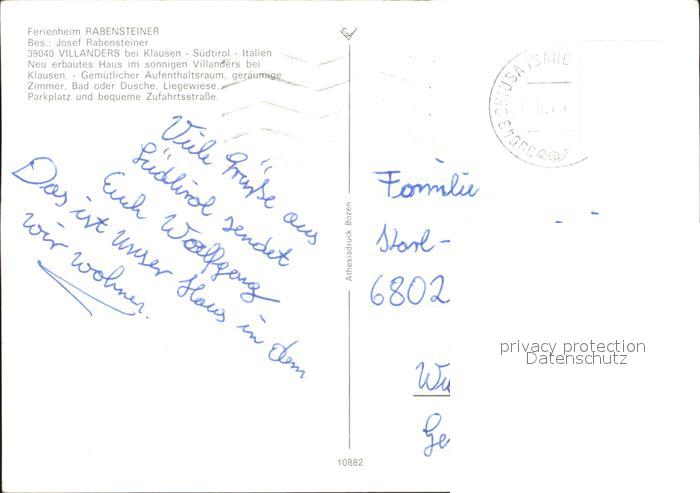 Ferienheim RABENSTEINER
Bes.: Josef Rabensteiner
39040 VILLANDERS bei Klausen - Südtirol - Italien
Neu erbautes Haus im sonnigen Villanders bei
Klausen. - Gemütlicher Aufenthaltsraum, geräumige
Zimmer, Bad oder Dusche, Liegewiese,
Parkplatz und bequeme Zufahrtsstraße.
Viele Grüße aus
Südtirol sendet
Euch Wolfgang
Das ist unser Haus in dem
wir wohnen.
Athesiadruck Bozen
10882
39043 CHIUSA ISARC
Familie
Karl-
6802
Wu
Ge
privacy protection
Datenschutz